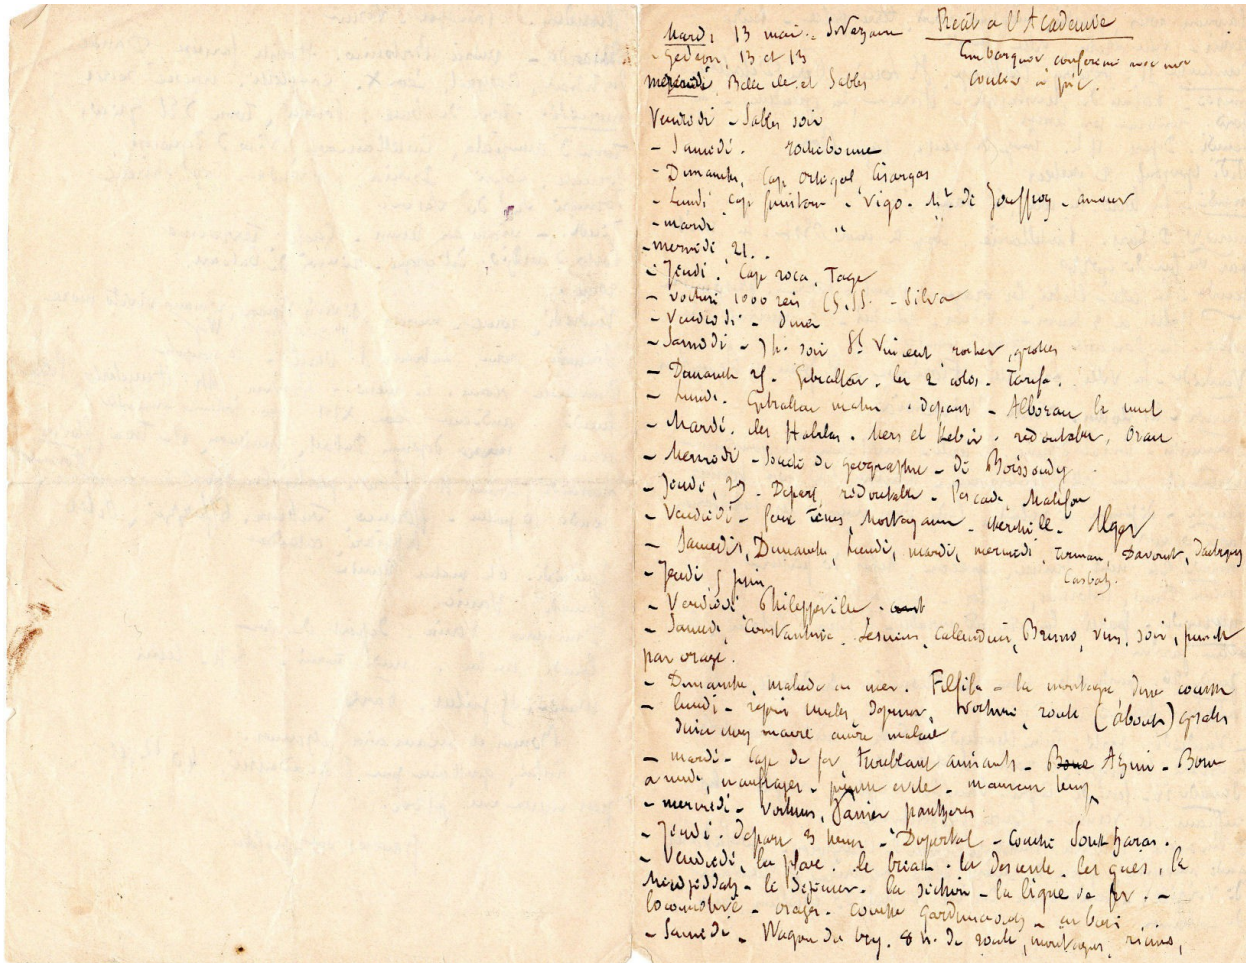 Récit à l'Académie
Mardi 13 mai. St Nazaire
Embarquer conférence avec moi
- Gédéon, 13 et 13
couteau à pic.
mercredi, Belle ile et Sables
Vendredi - Sables soir
- Samedi. rochebonne
- Dimanche, Cap Ortégal, Cisargas
- Lundi cap finistère - Vigo. Mr. de Jouffroy - amour
- mardi "
- mercredi 21..
- Jeudi. Cap roca, Tage
- Voiture 1000 reis CS.SS. - Silva
- Vendredi - diner
- Samedi - 7h. soir St Vincent rocher, grottes
- Dimanche 25. Gibraltar. les 2 colos. Tarifa.
- Lundi. Gibraltar matin. départ - Alboran la nuit
- Mardi. iles Habibas. Mers el Kebir. redoutable, Oran
- Mercredi - Société de géographie - de Boissoudy.
- Jeudi, 29. Départ, redoutable - Pescade, Matifou
- Vendredi - feux Ténès, Mostaganem - cherchell. Alger
- Samedi, Dimanche, Lundi, mardi, mercredi, Tirman, Davout,
Casbah.
- Jeudi 5 juin
- Vendredi, Philippeville.
- Samedi, Constantine. Lesueur, Calendrier, Bruno, vins, soir, punch
par orage.
- Dimanche, malade en mer. Filfila - la montagne dure comme
- Lundi - repris malades déjeuner, voiture, route (à bout) grottes
diner chez maire encore malade
- mardi - Cap de fer, - Bone
à midi, naufrages - - mauvais temps
- mercredi - Voitures, panthères
- Jeudi. Départ 3 heures - Duportal - couché Souk haras.
- Vendredi, la place. le break. la descente. les gués, la
Medjeddah - le déjeuner. la - la ligne de fer. -
locomotive - orage. couché Gardimaou -
- Samedi - Wagon du bey. 8 h. de route, montagnes, ricins,